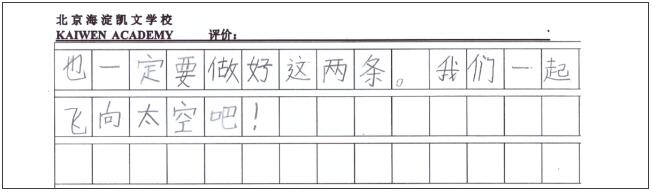 北京海淀凯文学校
KAIWEN ACADEMY 评价：
也一定要做好这两条。我们一起
飞向太空吧！